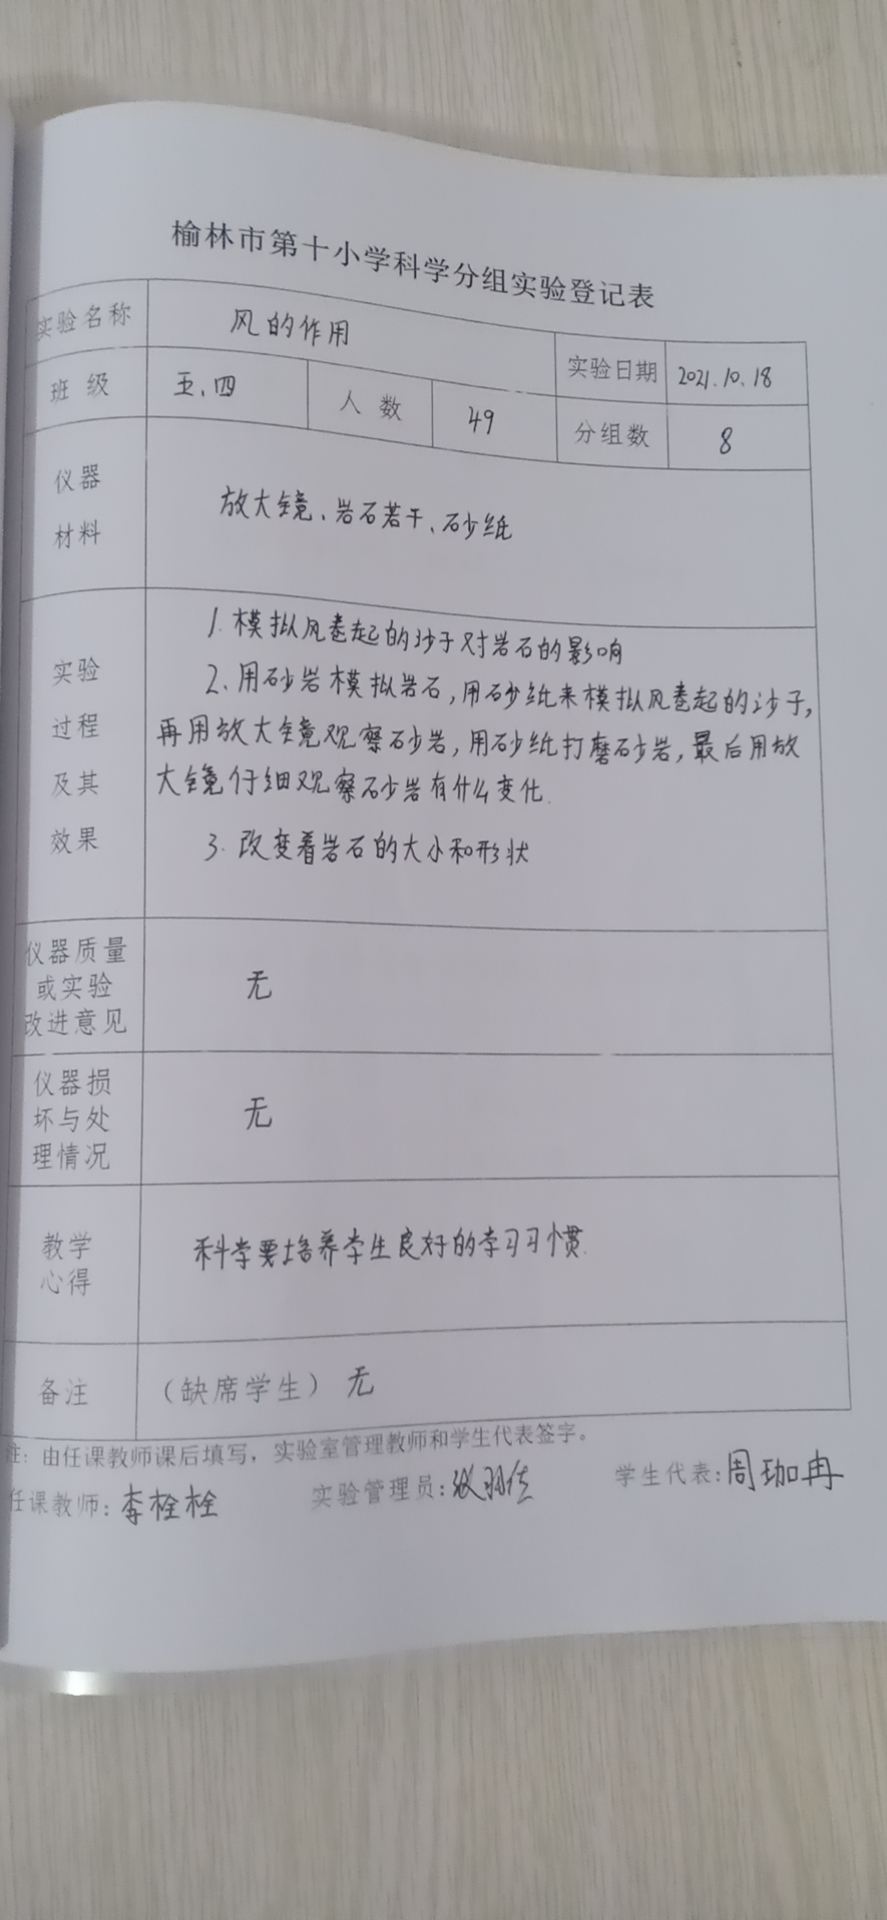 榆林市第十小学科学分组实验登记表
实验名称 风的作用 实验日期 2021.10.18
班级 五、四 人数 49 分组数 8
仪器
材料
放大镜、岩石若干、砂纸
实验
过程
及其
效果
1. 模拟风卷起的沙子对岩石的影响
2、用砂岩模拟岩石,用砂纸来模拟风卷起的沙子,
再用放大镜观察砂岩,用砂纸打磨砂岩,最后用放
大镜仔细观察砂岩有什么变化.
3. 改变着岩石的大小和形状
仪器质量
或实验
改进意见
无
仪器损
坏与处
理情况
无
教学
心得
科学要培养学生良好的学习习惯.
备注 (缺席学生) 无
注:由任课教师课后填写,实验室管理教师和学生代表签字。
任课教师:李栓栓 实验管理员: 学生代表:周珈冉